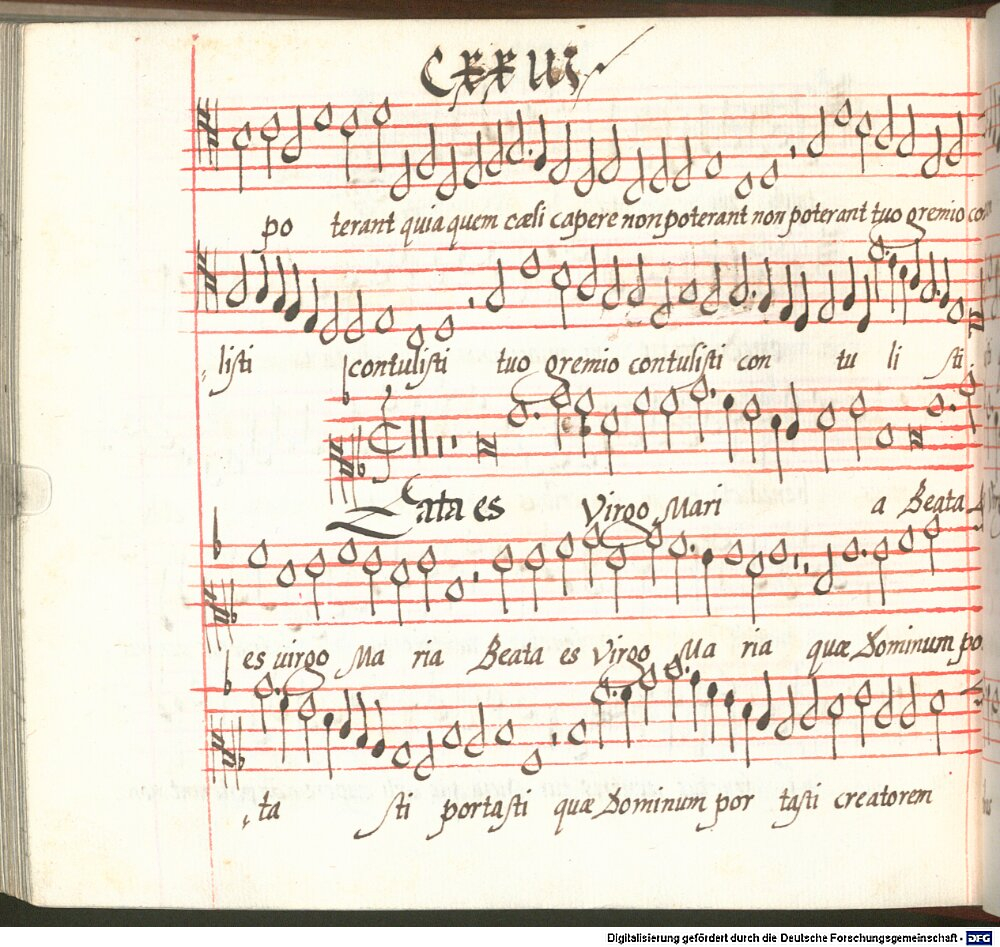 CXXIII
po terant quia quem cæli capere non poterant non poterant tuo gremio con
listi contulisti tuo gremio contulisti con tu li sti
Eata es Virgo Mari a Beata
es uirgo Ma ria Beata es Virgo Ma ria quæ Dominum po
ta sti portasti quæ Dominum por tasti creatorem
Digitalisierung gefördert durch die Deutsche Forschungsgemeinschaft - DFG